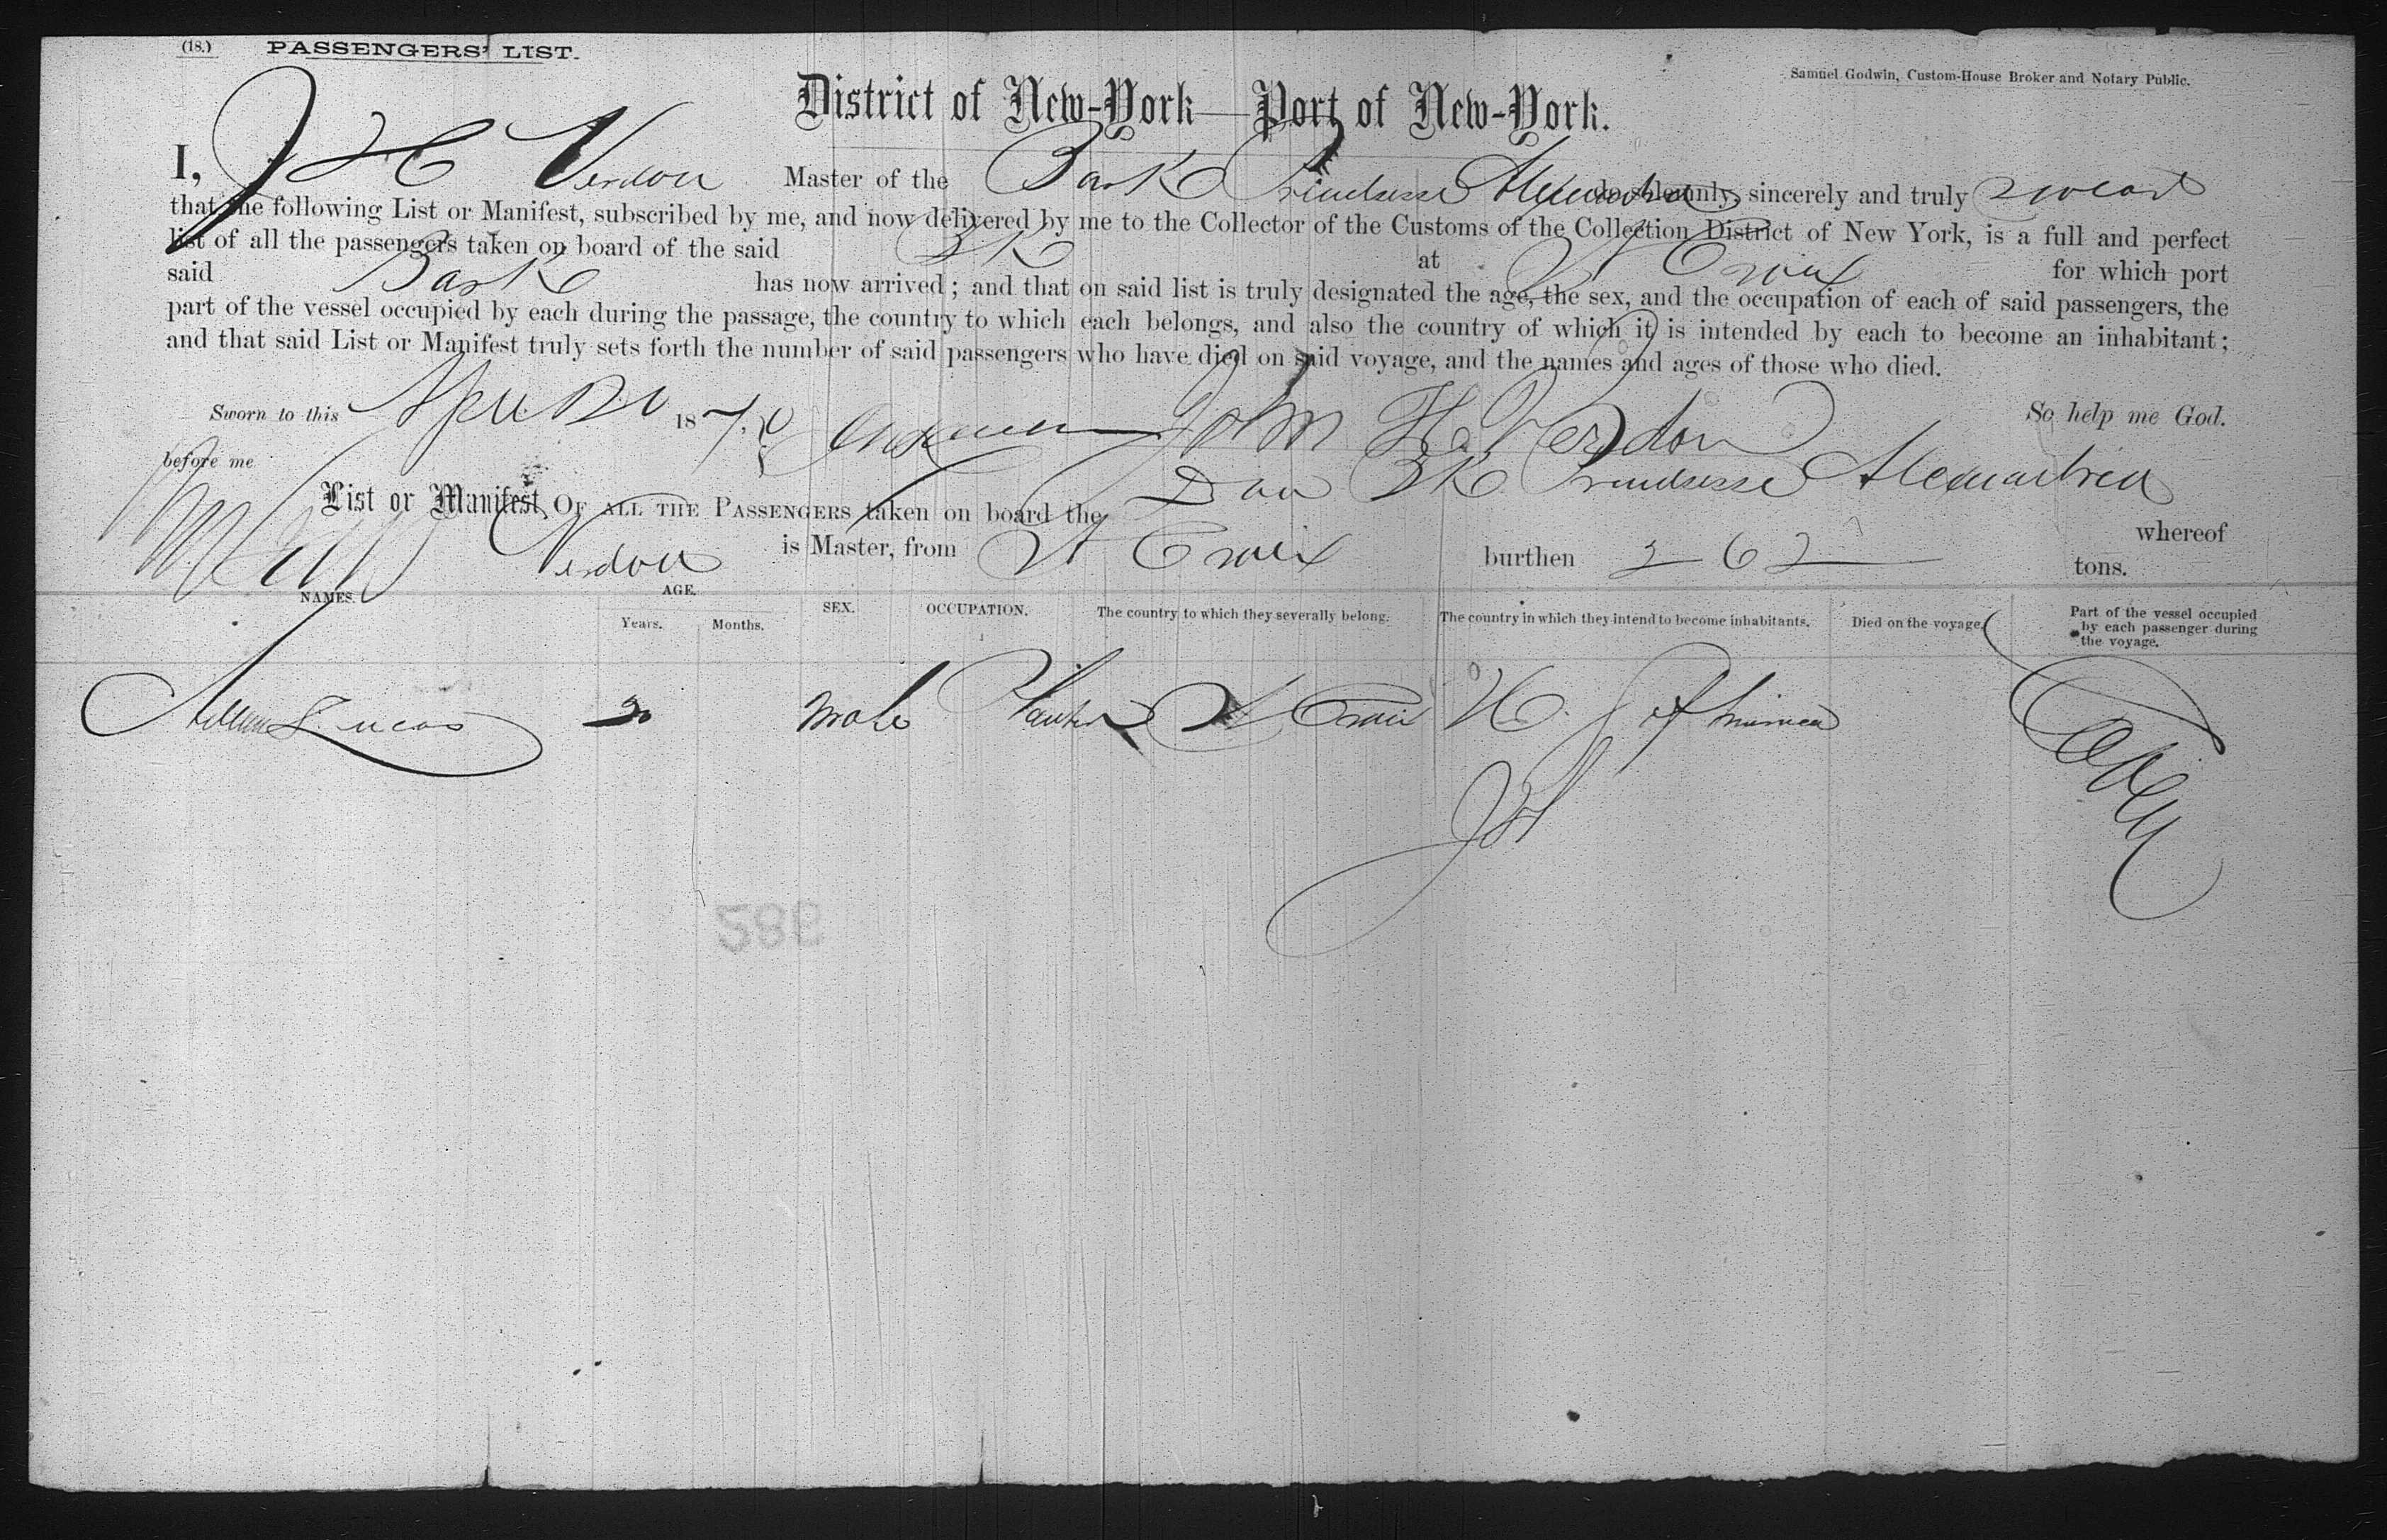 (18.) PASSENGERS' LIST.
Samuel Godwin, Custom-House Broker and Notary Public.
District of New-York—Port of New-York.
I, J H C Verdon Master of the Bark Prindsesse Alexandra do solemnly, sincerely and truly swear
that the following List or Manifest, subscribed by me, and now delivered by me to the Collector of the Customs of the Collection District of New York, is a full and perfect
list of all the passengers taken on board of the said BK at St Croix for which port
said Bark has now arrived; and that on said list is truly designated the age, the sex, and the occupation of each of said passengers, the
part of the vessel occupied by each during the passage, the country to which each belongs, and also the country of which it is intended by each to become an inhabitant;
and that said List or Manifest truly sets forth the number of said passengers who have died on said voyage, and the names and ages of those who died.
Sworn to this 187 John H. Verdon So help me God.
before me
List or Manifest OF ALL THE PASSENGERS taken on board the Dan BK Prindsesse Alexandria whereof
Verdon is Master, from St Croix burthen 262 tons.
NAMES. AGE. Years. Months. SEX. OCCUPATION. The country to which they severally belong. The country in which they intend to become inhabitants. Died on the voyage. Part of the vessel occupied by each passenger during the voyage.
Lucas male St Croix U. S. of America
286